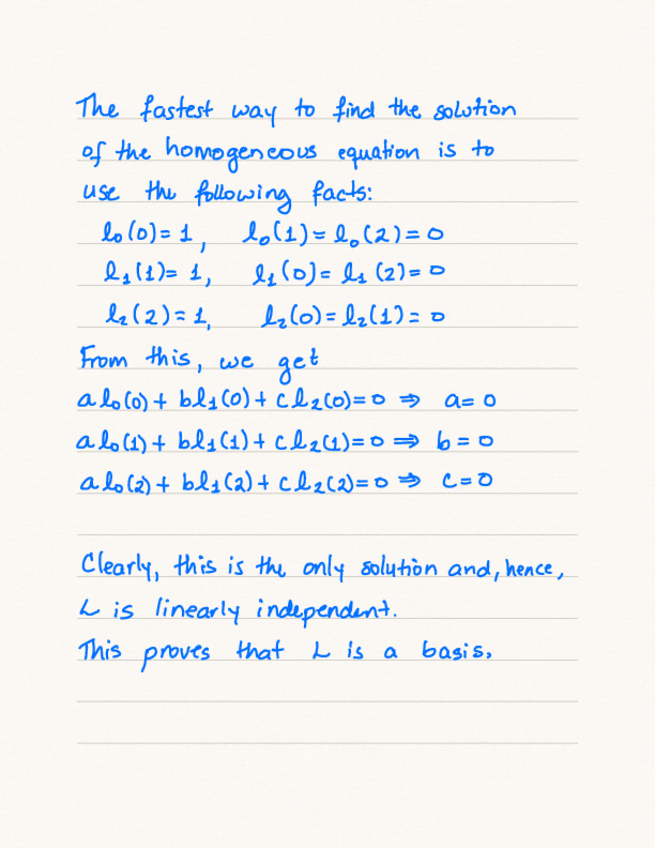 The fastest way to find the solution
of the homogeneous equation is to
use the following facts:
l₀(0)= 1, l₀(1)= l₀(2)= 0
l₁(1)= 1, l₁(0)= l₁(2)= 0
l₂(2)= 1, l₂(0)= l₂(1)= 0
From this, we get
a l₀(0) + b l₁(0) + c l₂(0)= 0 ⇒ a= 0
a l₀(1) + b l₁(1) + c l₂(1)= 0 ⇒ b = 0
a l₀(2) + b l₁(2) + c l₂(2)= 0 ⇒ c= 0
Clearly, this is the only solution and, hence,
L is linearly independent.
This proves that L is a basis.